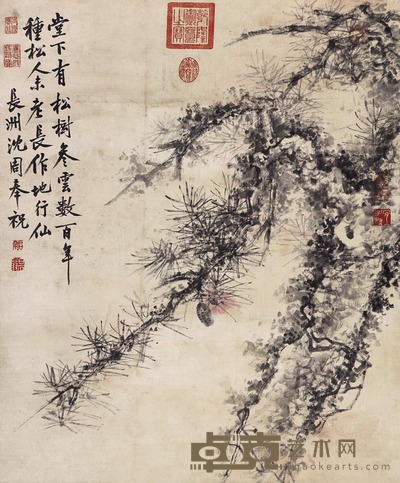 堂下有松樹參雲數百年
種松人未老長作地行仙
長洲沈周奉祝
乾隆御覽之寶
卓克艺术网
zhuokearts.com